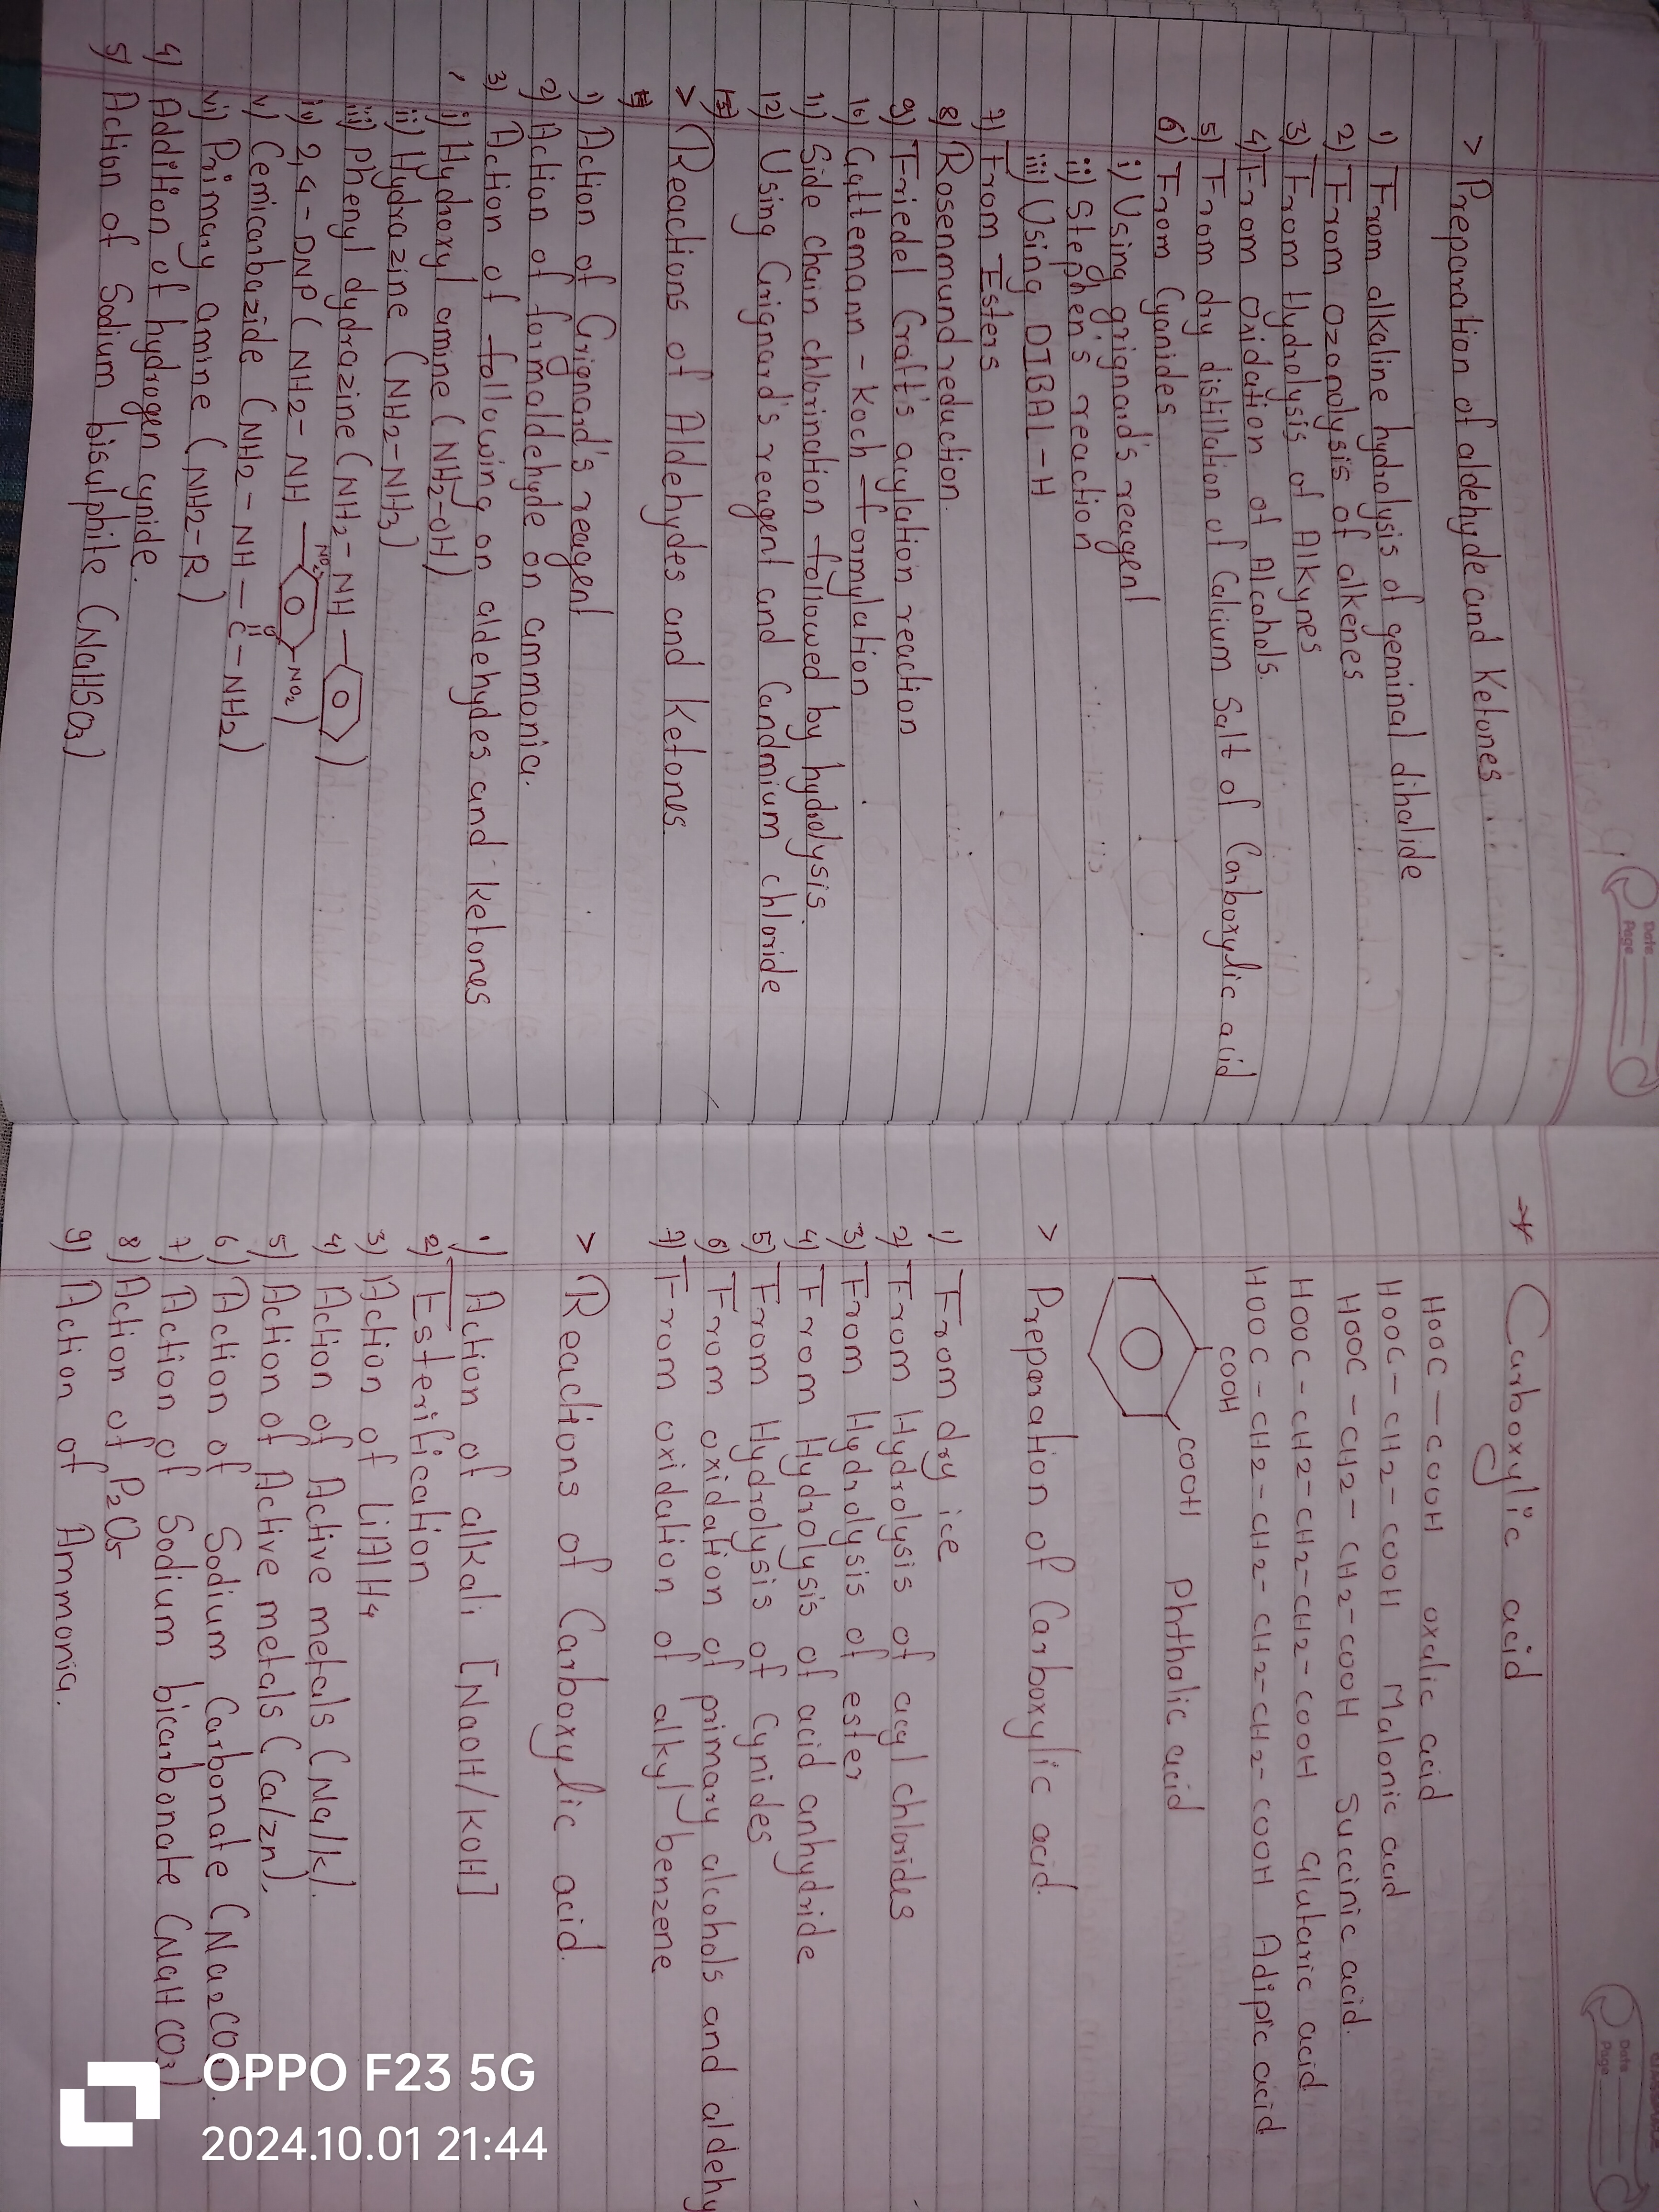 Date
Page
> Preparation of aldehyde and Ketones
1) From alkaline hydrolysis of geminal dihalide
2) From Ozonolysis of alkenes
3) From Hydrolysis of Alkynes
4) From Oxidation of Alcohols.
5) From dry distillation of Calcium Salt of Carboxylic acid
6) From Cyanides
i) Using grignard's reagent
ii) Stephen's reaction
iii) Using DIBAL-H
7) From Esters
8) Rosenmund reduction.
9) Friedel Craft's acylation reaction
10) Gattemann - Koch formylation
11) Side chain chlorination followed by hydrolysis.
12) Using Grignard's reagent and Candmium chloride
13)
> Reactions of Aldehydes and Ketones.
1) Action of Grignard's reagent
2) Action of formaldehyde on ammonia.
3) Action of following on aldehydes and ketones
i) Hydroxyl amine (NH2-OH)
ii) Hydrazine (NH2-NH3)
iii) Phenyl dydrazine (NH2-NH- )
NO2
iv) 2,4-DNP (NH2-NH -NO2)
O
v) Cemicarbazide (NH2-NH-C-NH2)
vi) Primary amine (NH2-R)
4) Addition of hydrogen cynide.
5) Action of Sodium bisulphite (NaHSO3)
classmate
Date
Page
* Carboxylic acid
HOOC-COOH oxalic acid
HOOC-CH2-COOH Malonic acid
HOOC-CH2-CH2-COOH Succinic acid.
HOOC-CH2-CH2-CH2-COOH Glutaric acid
HOOC-CH2-CH2-CH2-CH2-COOH Adipic acid
COOH
COOH Phthalic acid
> Preparation of Carboxylic acid.
1) From dry ice
2) From Hydrolysis of acyl chlorides
3) From Hydrolysis of ester
4) From Hydrolysis of acid anhydride
5) From Hydrolysis of Cynides
6) From oxidation of primary alcohols and aldehy
7) From oxidation of alkyl benzene
> Reactions of Carboxylic acid.
1) Action of alkali [NaOH/KOH]
2) Esterification
3) Action of LiAlH4
4) Action of Active metals (Na/K).
5) Action of Active metals (Ca/Zn).
6) Action of Sodium Carbonate (Na2CO3).
7) Action of Sodium bicarbonate (NaHCO3)
8) Action of P2O5
9) Action of Ammonia.
OPPO F23 5G
2024.10.01 21:44